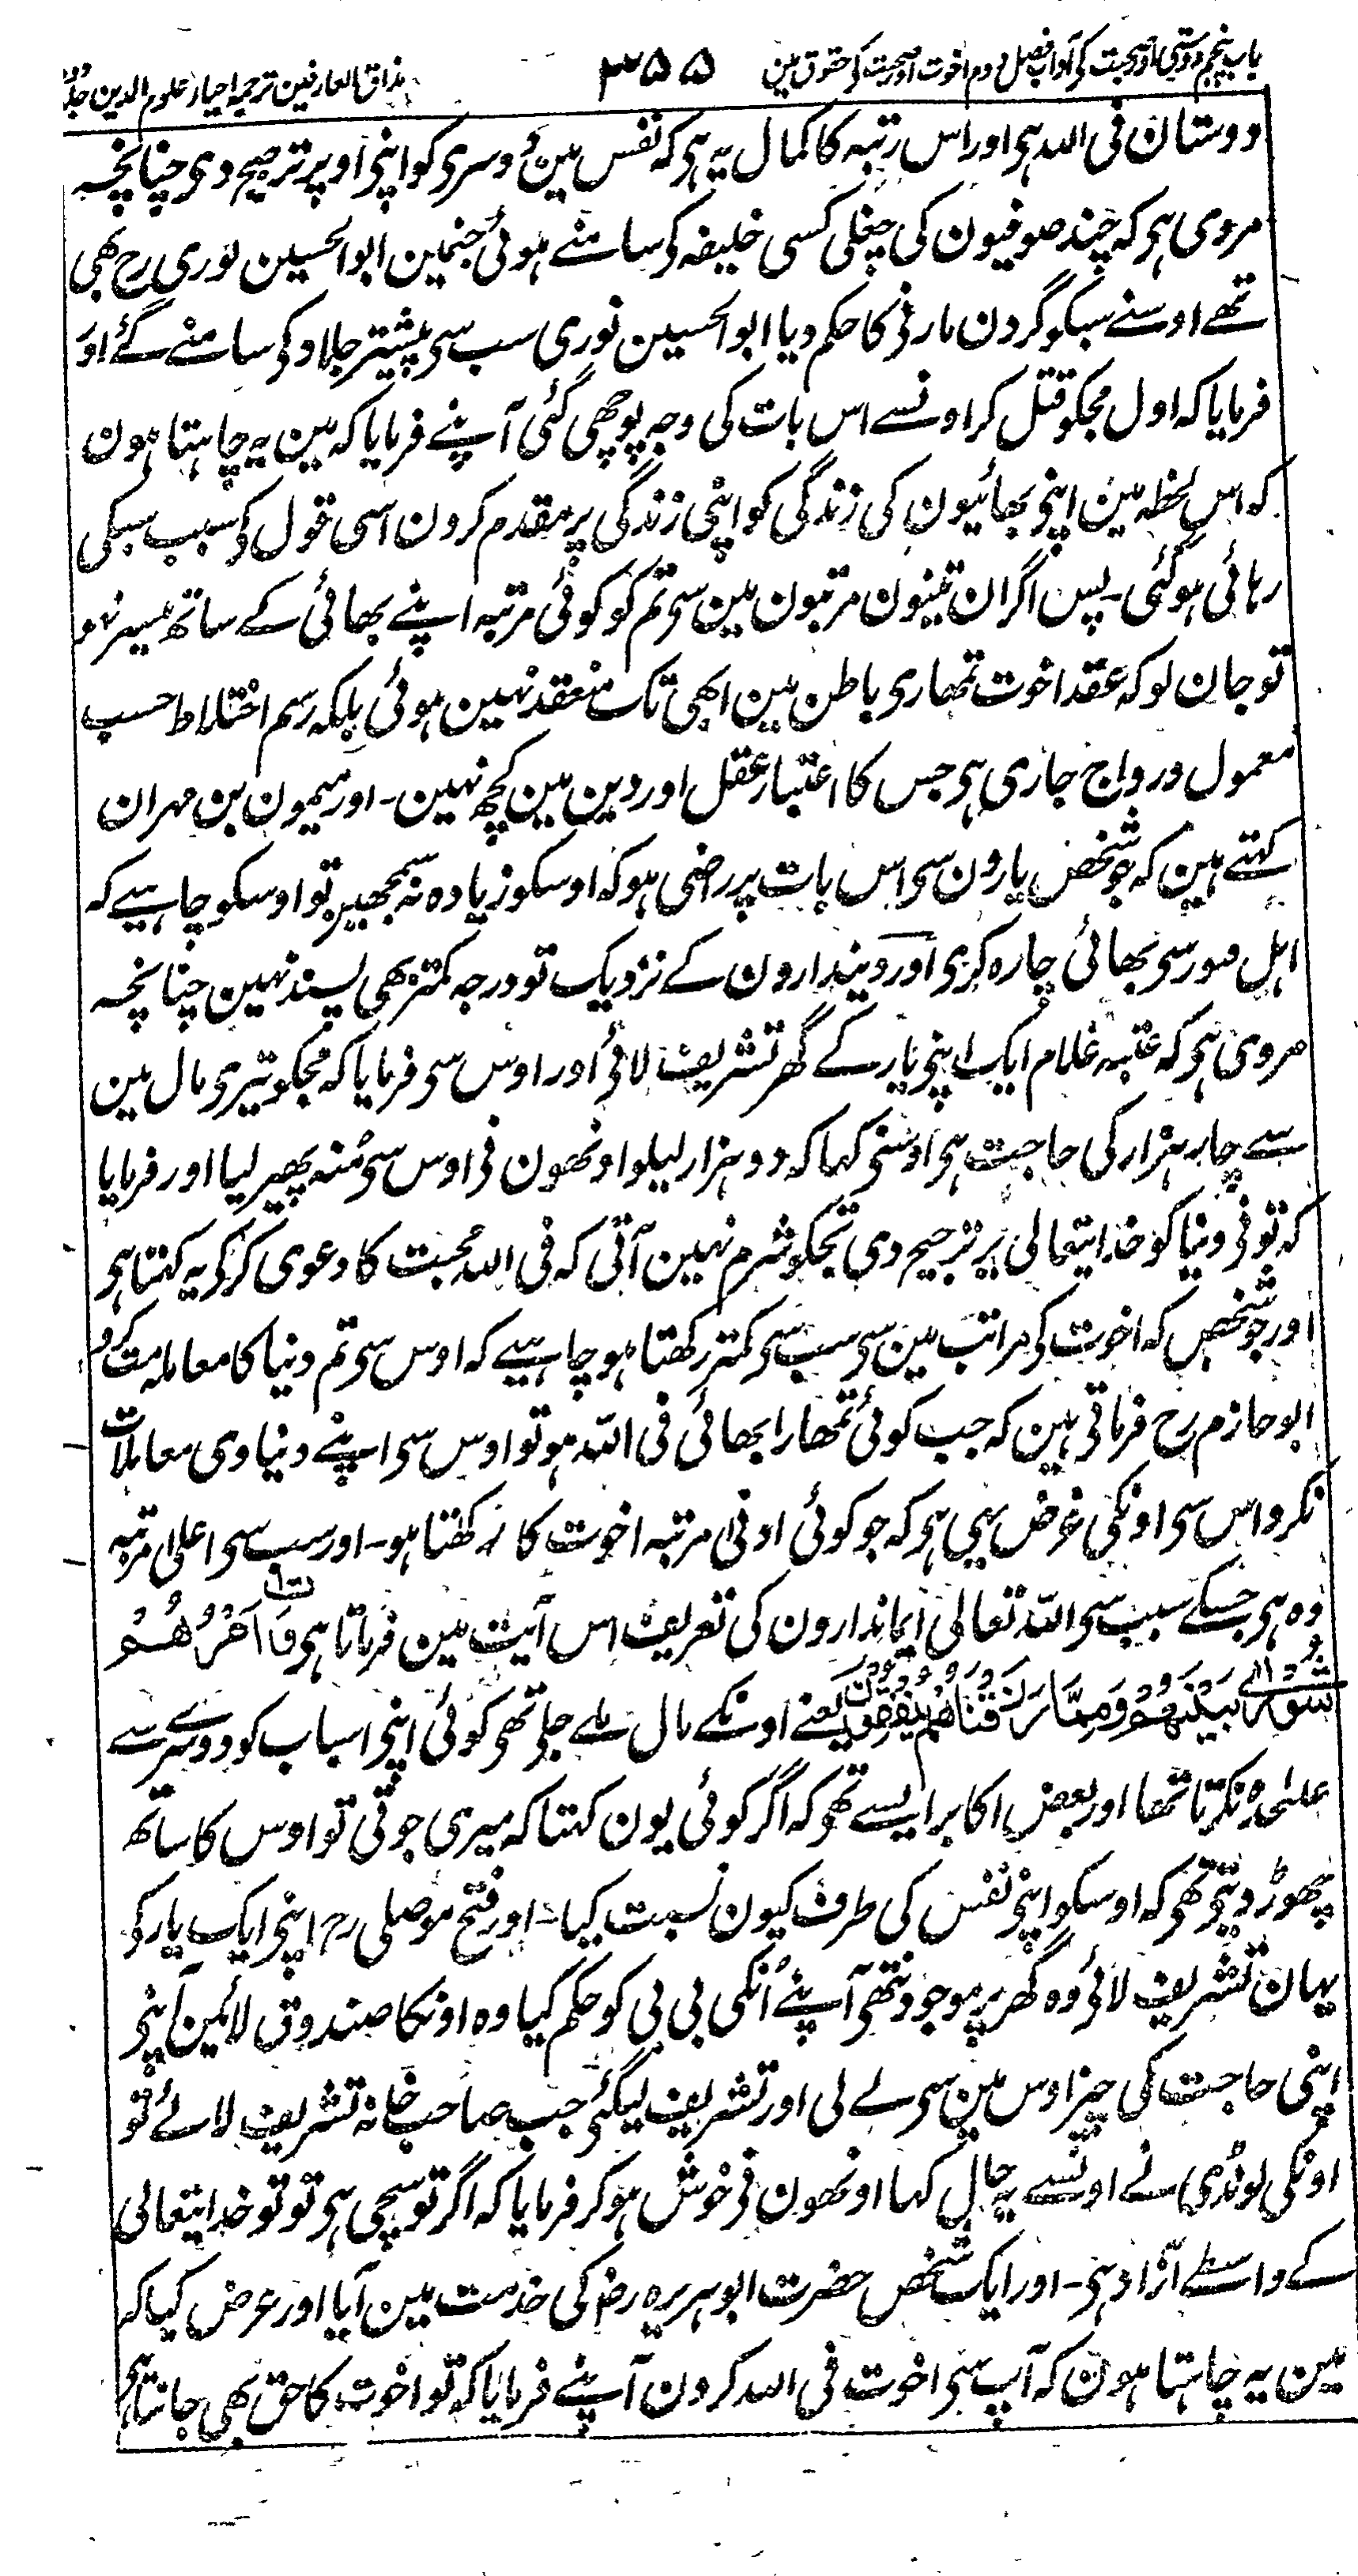 باب پنجم دوستی اور صحبت کی آداب فصل دوم اخوت اور صحبت کی حقوق مین ۳۵۵ مذاق العارفین ترجمہ احیاء علوم الدین جلد
دوستان فی اللہ ہی اور اس رتبہ کا کمال یہ ہی کہ نفس مین دوسری کو اپنی اوپر ترجیح دی چنانچہ
مروی ہی کہ چند صوفیون کی چغلی کسی خلیفہ کی سامنے ہوئی جنمین ابو الحسین نوری رح بھی
تھے اوسنے سبکو گردن مارنی کا حکم دیا ابو الحسین نوری سب سی پیشتر جلاد کی سامنے گئے اور
فرمایا کہ اول مجکو قتل کر اونسے اس بات کی وجہ پوچھی گئی آپنے فرمایا کہ مین یہ چاہتا ہون
کہ اس لحظہ مین اپنی بھائیون کی زندگی کو اپنی زندگی پر مقدم کرون اسی قول کی سبب سبکی
رہائی ہو گئی۔ پس اگر ان تینون مرتبون مین سی تم کو کوئی مرتبہ اپنے بھائی کے ساتھ میسر نہو
تو جان لو کہ عقد اخوت تمھاری باطن مین ابھی تک منعقد نہین ہوئی بلکہ رسم اختلاط حسب
معمول و رواج جاری ہی جس کا اعتبار عقل اور دین مین کچھ نہین۔ اور میمون بن مہران
کہتے ہین کہ جو شخص یارون سی اس بات پر راضی ہو کہ اوسکو زیادہ نہ سمجھین تو اوسکو چاہیے کہ
اہل قبور سی بھائی چارہ کری اور دیندارون کے نزدیک تو درجہ کمتر بھی پسند نہین چنانچہ
مروی ہی کہ عتبہ غلام ایک اپنی یار کے گھر تشریف لائی اور اوس سی فرمایا کہ مجکو تیری مال مین
سے چار ہزار کی حاجت ہی اوسنی کہا کہ دو ہزار لیلو اونھون نی اوس سی مُنہ پھیر لیا اور فرمایا
کہ تونی دنیا کو خدایتعالی پر ترجیح دی تجکو شرم نہین آتی کہ فی اللہ محبت کا دعوی کر کی یہ کہتا ہی
اور جو شخص کہ اخوت کی مراتب مین سی سب سی کمتر رکھتا ہو چاہیے کہ اوس سی تم دنیا کا معاملہ مت کرو
ابو حازم رح فرماتی ہین کہ جب کوئی تمھارا بھائی فی اللہ ہو تو اوس سی اپنے دنیاوی معاملات
نکرو اس سی اونکی غرض یہی ہی کہ جو کوئی ادنی مرتبہ اخوت کا رکھتا ہو۔ اور سب سی اعلی مرتبہ
وہ ہی جسکے سبب سی اللہ تعالی ایماندارون کی تعریف اس آیت مین فرماتا ہی وَاَمْرُهُمْ
شُوْرٰی بَيْنَهُمْ وَمِمَّا رَزَقْنَاهُمْ يُنْفِقُوْنَ یعنے اونکے مال ملے جلے تھی کوئی اپنی اسباب کو دوسرے سے
علحدہ نکرتا تھا اور بعض اکابر ایسے تھی کہ اگر کوئی یون کہتا کہ میری جوتی تو اوس کا ساتھ
چھوڑ دیتی تھی کہ اوسکو اپنی نفس کی طرف کیون نسبت کیا۔ اور فتح موصلی رح اپنی ایک یار کی
یہان تشریف لائی وہ گھر پر موجود نتھی آپنے اُنکی بی بی کو حکم کیا وہ اونکا صندوق لائین آپنی
اپنی حاجت کی چیز اوس مین سی لے لی اور تشریف لیگئی جب صاحب خانہ تشریف لائے تو
اونکی لونڈی نے اونسے یہ حال کہا اونھون نی خوش ہو کر فرمایا کہ اگر تو سچی ہی تو تو خدایتعالی
کے واسطے آزاد ہی۔ اور ایک شخص حضرت ابو ہریرہ رض کی خدمت مین آیا اور عرض کیا کہ
مین یہ چاہتا ہون کہ آپ سی اخوت فی اللہ کرون آپنے فرمایا کہ تو اخوت کا حق بھی جانتا ہی